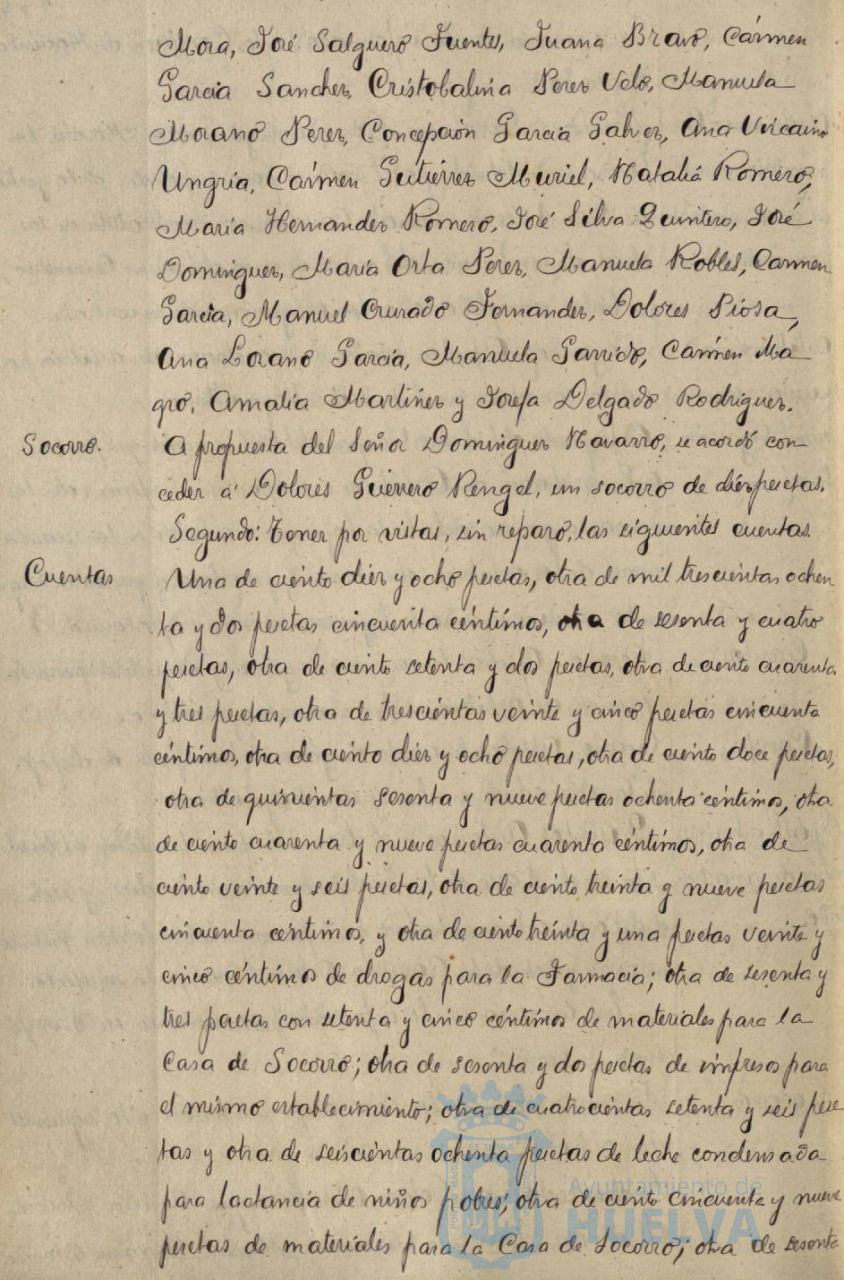 Mora, José Salguero Fuentes, Juana Bravo, Cármen
Garcia Sanchez, Cristobalina Perez Velo, Manuela
Morano Perez, Concepción García Galvez, Ana Vizcaino
Ungría, Cármen Gutiérrez Muriel, Natalia Romero,
María Hernandez Romero, José Silva Quintero, José
Dominguez, María Orta Perez, Manuela Robles, Carmen
García, Manuel Cruzado Fernandez, Dolores Piosa,
Ana Lozano García, Manuela Garrido, Carmen Ma
gro, Amalia Martinez y Josefa Delgado Rodriguez.
Socorro. A propuesta del Señor Dominguez Navarro, se acordó con
ceder á Dolores Guerrero Rengel, un socorro de diez pesetas.
Segundo: Tener por vistas, sin reparo, las siguientes cuentas.
Cuentas Una de ciento diez y ocho pesetas, otra de mil trescientas ochen
ta y dos pesetas cincuenta céntimos, otra de sesenta y cuatro
pesetas, otra de ciento setenta y dos pesetas, otra de ciento cuarenta
y tres pesetas, otra de trescientas veinte y cinco pesetas cincuenta
céntimos, otra de ciento diez y ocho pesetas, otra de ciento doce pesetas,
otra de quinientas sesenta y nueve pesetas ochenta céntimos, otra
de ciento cuarenta y nueve pesetas cuarenta céntimos, otra de
ciento veinte y seis pesetas, otra de ciento treinta y nueve pesetas
cincuenta céntimos, y otra de ciento treinta y una pesetas veinte y
cinco céntimos de drogas para la Farmacia; otra de sesenta y
tres pesetas con setenta y cinco céntimos de materiales para la
Casa de Socorro; otra de sesenta y dos pesetas de impresos para
el mismo establecimiento; otra de cuatrocientas setenta y seis pese
tas y otra de seiscientas ochenta pesetas de leche condensada
para lactancia de niños pobres; otra de ciento cincuenta y nueve
pesetas de materiales para la Casa de Socorro; otra de sesenta
Ayuntamiento de
HUELVA